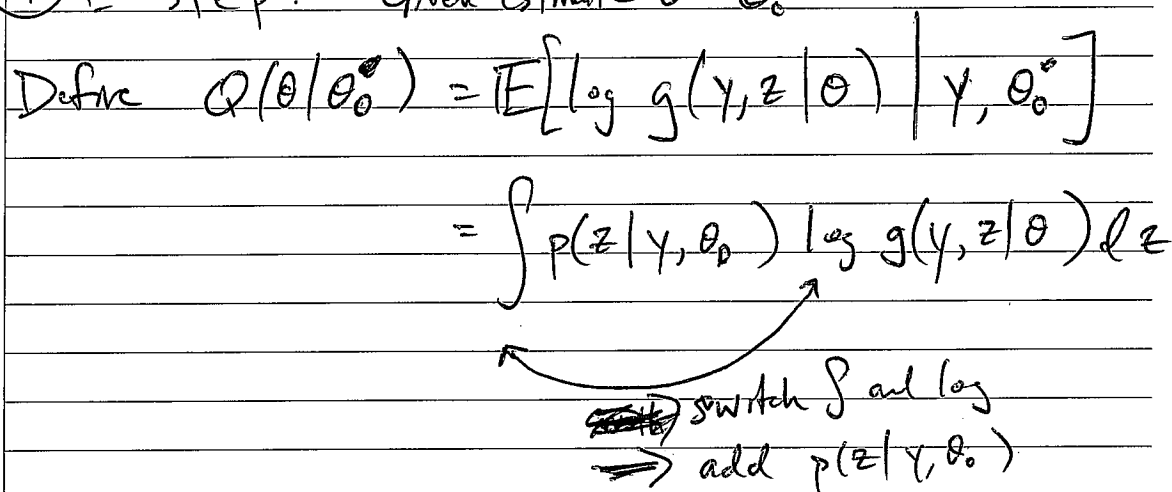 ① E step: Given estimate θ θ₀
Define Q(θ|θ₀) = E[log g(y,z|θ) | y, θ₀]
= ∫ p(z|y,θ₀) log g(y,z|θ) dz
⇒ switch ∫ and log
⇒ add p(z|y,θ₀)